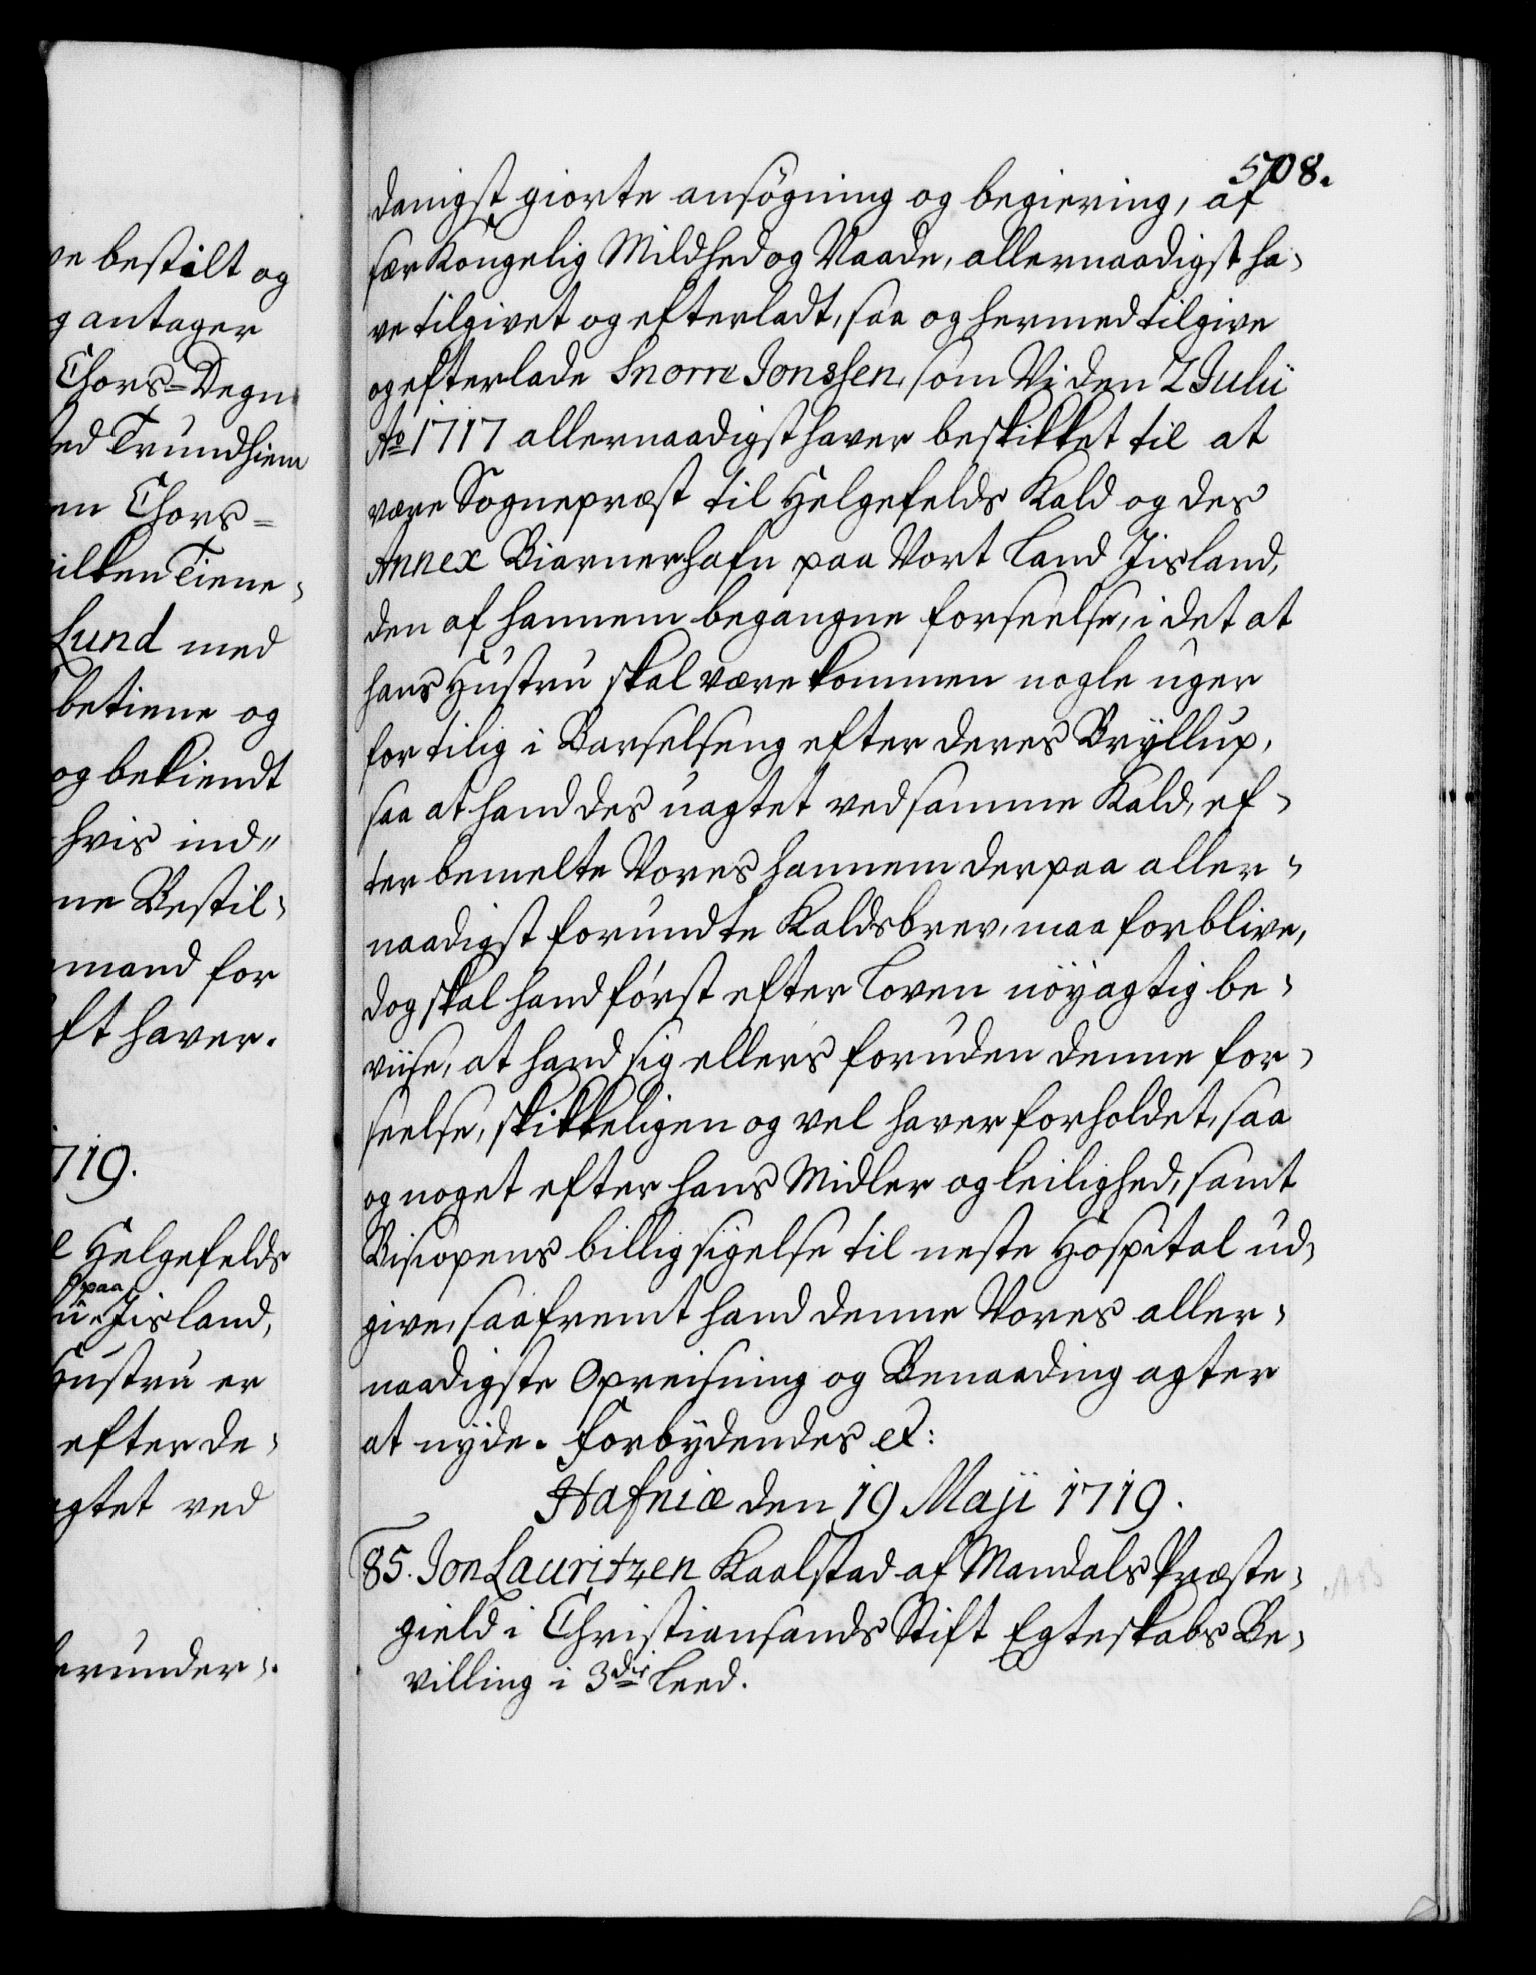 ve bestilt og
g antager
Chors=Degn
ed Trundhiem
en Chors=
ilken Tiene-
Lund med
betiene og
og bekiendt
hvis ind-
ne Bestil-
mand for
ft haver.
1719.
l Helgefelds
paa
u Jisland,
Hustru er
efter de-
gtet ved
erunder-.
508.
danigst giorte ansögning og begiering, af
sær Kongelig Mildhed og Naade, allernaadigst ha-
ve tilgivet og efterladt, saa og hermed tilgive
og efterlade Snorre Jonssen, som Vi den 2 Julii
Ao 1717 allernaadigst haver beskikket til at
være Sognepræst til Helgefelds Kald og des
Annex Biarnerhafn paa Vort Land Jisland,
den af hannem begangne forseelse, i det at
hans Hustru skal være kommen nogle uger
for tilig i Barselseng efter deres Bryllup,
saa at hand des uagtet ved samme Kald, ef-
ter bemelte Vores hannem derpaa aller-
naadigst forundte Kaldsbrev, maa forblive,
dog skal hand först efter Loven nöyagtig be-
viise, at hand sig ellers foruden denne for-
seelse, skikkeligen og vel haver forholdet, saa
og noget efter hans Midler og leilighed, samt
Bisopens billig sigelse til neste Hospital ud-
give, saafremt hand denne Vores aller-
naadigste Opreisning og Benaading agter
at nyde. Forbydendes et:
Hafniæ den 19 Maji 1719.
85. Jon Lauritzen Kaalstad af Mandals Præste-
gield i Christiansands Stift Egteskabs Be-
villing i 3die Leed.